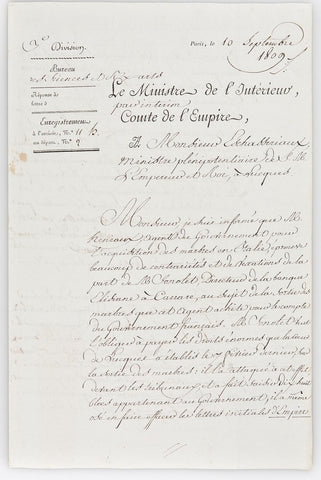 3e Division.
Bureau
des Sciences et Arts
Réponse de
lettre d
Enregistrement
à l'arrivée, No. 11
au départ, No.
Paris, le 10 Septembre
1809.
Le Ministre de l'Intérieur,
par interim
Comte de l'Empire,
A Monsieur
Ministre plénipotentiaire de S. M.
L'Empereur et Roi, à Lucques
Monsieur, je suis informé que M.
agent du Gouvernement pour
l'acquisition des marbres en Italie, éprouve
beaucoup de contrariétés et de vexations de la
part de M. Directeur de la banque
à Carrare, au sujet de la sortie des
marbres que cet agent achète pour le compte
du Gouvernement français. M.
l'obliger à payer les droits énormes que
Lucques a établis le dernier, sur
la sortie des marbres; il l'a attaqué à cet effet
devant les tribunaux, et a fait saisir
blocs appartenant au Gouvernement; il a même
osé en faire effacer les lettres initiales d'Empire